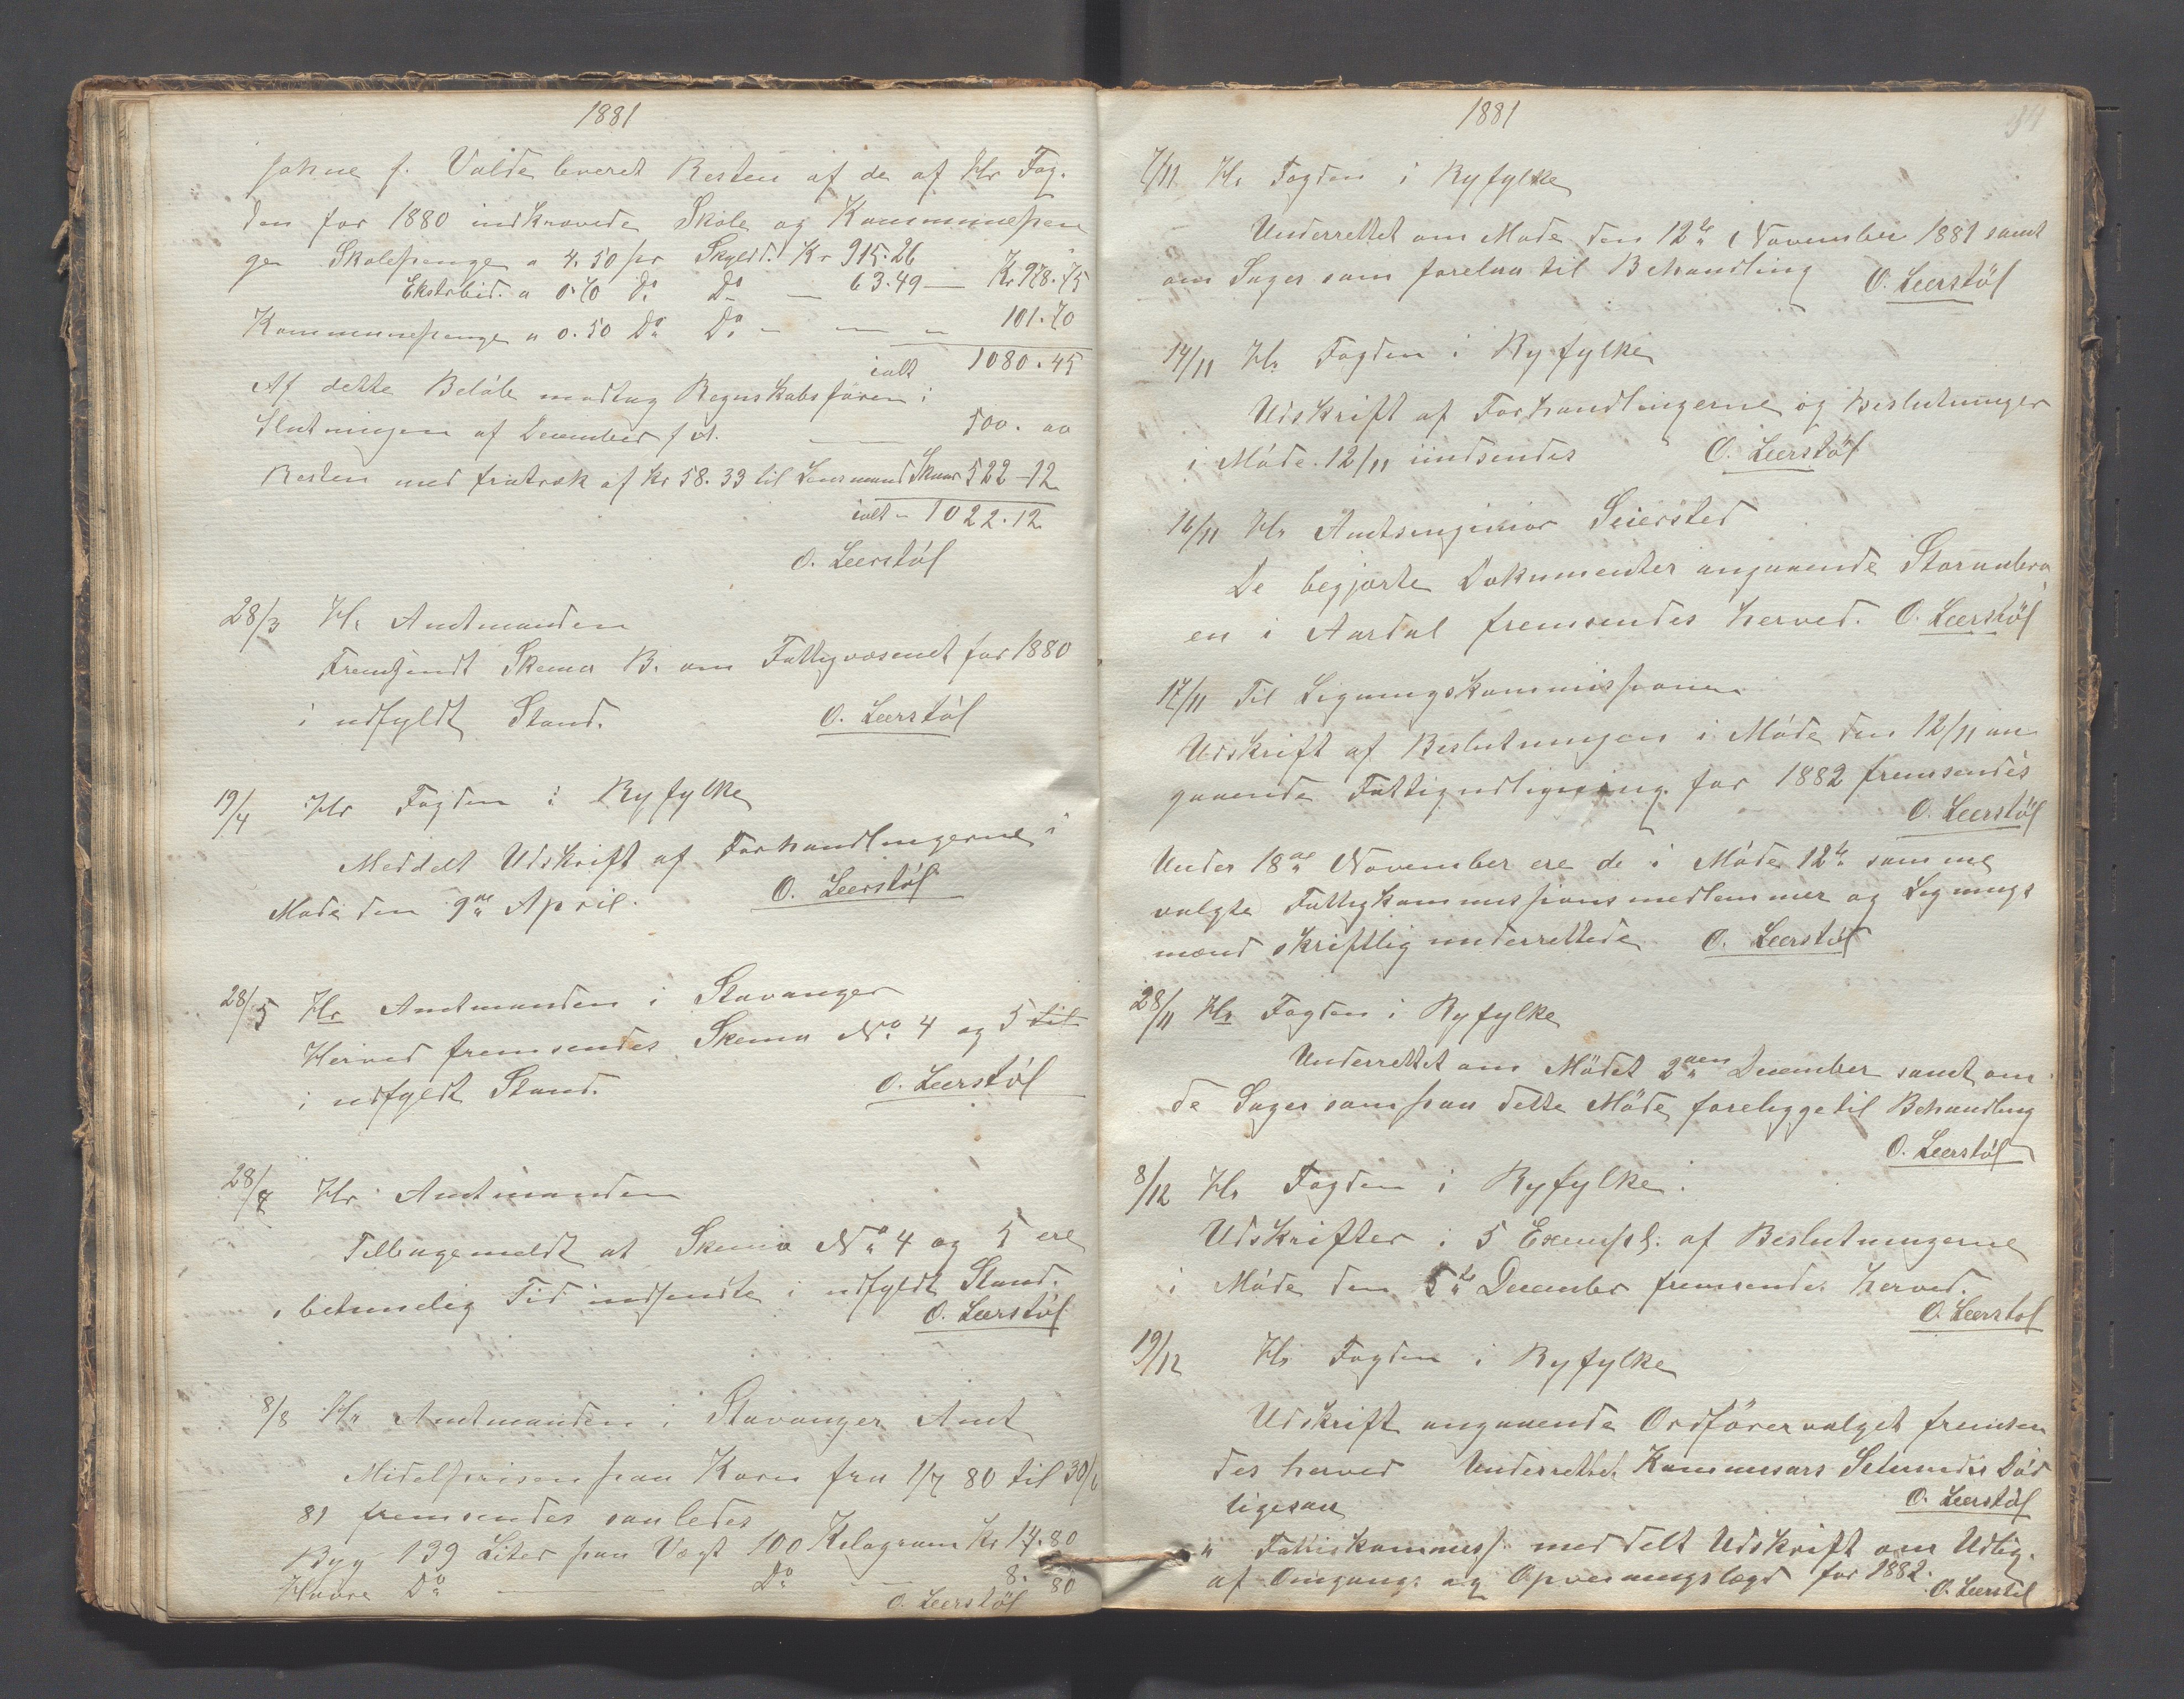 1881
Johne J. Valde leveret Resten af de af Hr Fog-
den for 1880 indkrævede Skole og Kommunepen
ge Skolepenge a 4.50 pr Skyldd. Kr 915.26
Ekstrbid. a 0.70 Do Do — 63.49 — Kr 978.75
Kommunepenge a 0.50 Do Do — — — 101.70
ialt 1080.45
Af dette Beløb modtog Regnskabsføren i
Slutningen af December f A. — 500.00
Resten med fratræk af Kr 58.33 til Lensmand Skaar 522-12
ialt - 1022.12
O. Leerstøl
28/3 Hr Amtmanden
Fremsendt Skema B. om Fattigvæsenet for 1880
i udfyldt Stand. O. Leerstøl
19/4 Hr Fogden i Ryfylke
Meddelt Udskrift af Forhandlingerne i
Møde den 9de April. O. Leerstøl
28/5 Hr Amtmanden i Stavanger
Herved fremsendes Skema No 4 og 5 til
i udfyldt Stand. O. Leerstøl
28/7 Hr Amtmanden
Tilbagemeldt at Skema No 4 og 5 ere
i betimelig Tid indsendte i udfyldt Stand.
O. Leerstøl
8/8 Hr Amtmanden i Stavanger Amt
Midelprisen paa Korn fra 1/7 80 til 30/6
81 fremsendes saaledes
Byg 139 Liter paa Vægt 100 Kilogram Kr 17.80
Havre Do — Do — 8.80
O. Leerstøl
1881
94
7/11 Hr Fogden i Ryfylke
Underrettet om Møde den 12te November 1881 samt
om Sager som forelaa til Behandling O. Leerstøl
14/11 Hr Fogden i Ryfylke
Udskrift af Forhandlingerne og Beslutninger
i Møde 12/11 indsendes O. Leerstøl
16/11 Hr Amtsingeniør Seiersted
De begjærte Dokumenter angaaende Storaabro
en i Aardal fremsendes herved. O. Leerstøl
17/11 Til Ligningskommissionen
Udskrift af Beslutningen i Møde den 12/11 an-
gaaende Fattigudligning for 1882 fremsendes
O. Leerstøl
Under 18de November ere de i Møde 12te samme
valgte Fattigkommissionsmedlemmer og Lignings
mænd skriftlig underrettede O. Leerstøl
28/11 Hr Fogden i Ryfylke
Underrettet om Mødet 2den December samt om
de Sager som paa dette Møde foreligge til Behandling
O. Leerstøl
8/12 Hr Fogden i Ryfylke.
Udskrifter i 5 Exempl. af Beslutningerne
i Møde den 5te December fremsendes herved.
O. Leerstøl
19/12 Hr Fogden i Ryfylke
Udskrift angaaende Ordførervalget fremsen
des herved Underrettet
ligesaa O. Leerstøl
" Fattigkommiss. meddelt Udskrift om Udlig.
af Omgangs og Opvarmingslægd for 1882.
O. Leerstøl